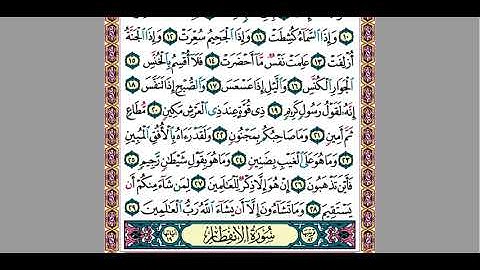 ١٠ وَإِذَا السَّمَاءُ كُشِطَتْ ١١ وَإِذَا الْجَحِيمُ سُعِّرَتْ ١٢ وَإِذَا الْجَنَّةُ
أُزْلِفَتْ ١٣ عَلِمَتْ نَفْسٌ مَا أَحْضَرَتْ ١٤ فَلَا أُقْسِمُ بِالْخُنَّسِ ١٥
الْجَوَارِ الْكُنَّسِ ١٦ وَاللَّيْلِ إِذَا عَسْعَسَ ١٧ وَالصُّبْحِ إِذَا تَنَفَّسَ ١٨
إِنَّهُ لَقَوْلُ رَسُولٍ كَرِيمٍ ١٩ ذِي قُوَّةٍ عِنْدَ ذِي الْعَرْشِ مَكِينٍ ٢٠ مُطَاعٍ
ثَمَّ أَمِينٍ ٢١ وَمَا صَاحِبُكُمْ بِمَجْنُونٍ ٢٢ وَلَقَدْ رَآهُ بِالْأُفُقِ الْمُبِينِ
٢٣ وَمَا هُوَ عَلَى الْغَيْبِ بِضَنِينٍ ٢٤ وَمَا هُوَ بِقَوْلِ شَيْطَانٍ رَجِيمٍ ٢٥
فَأَيْنَ تَذْهَبُونَ ٢٦ إِنْ هُوَ إِلَّا ذِكْرٌ لِلْعَالَمِينَ ٢٧ لِمَنْ شَاءَ مِنْكُمْ أَنْ
يَسْتَقِيمَ ٢٨ وَمَا تَشَاءُونَ إِلَّا أَنْ يَشَاءَ اللَّهُ رَبُّ الْعَالَمِينَ ٢٩
سُورَةُ الِانْفِطَارِ